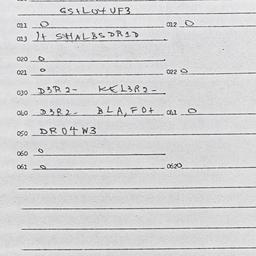 GS+LU4 UF3
011 0 012 0
013 J+ SHALBSDR1D
020 0
021 0 022 0
030 D3R2- KEL3R2-
040 D3R2- BLA, FO+ 041 0
050 DR04W3
060 0
061 0 0620